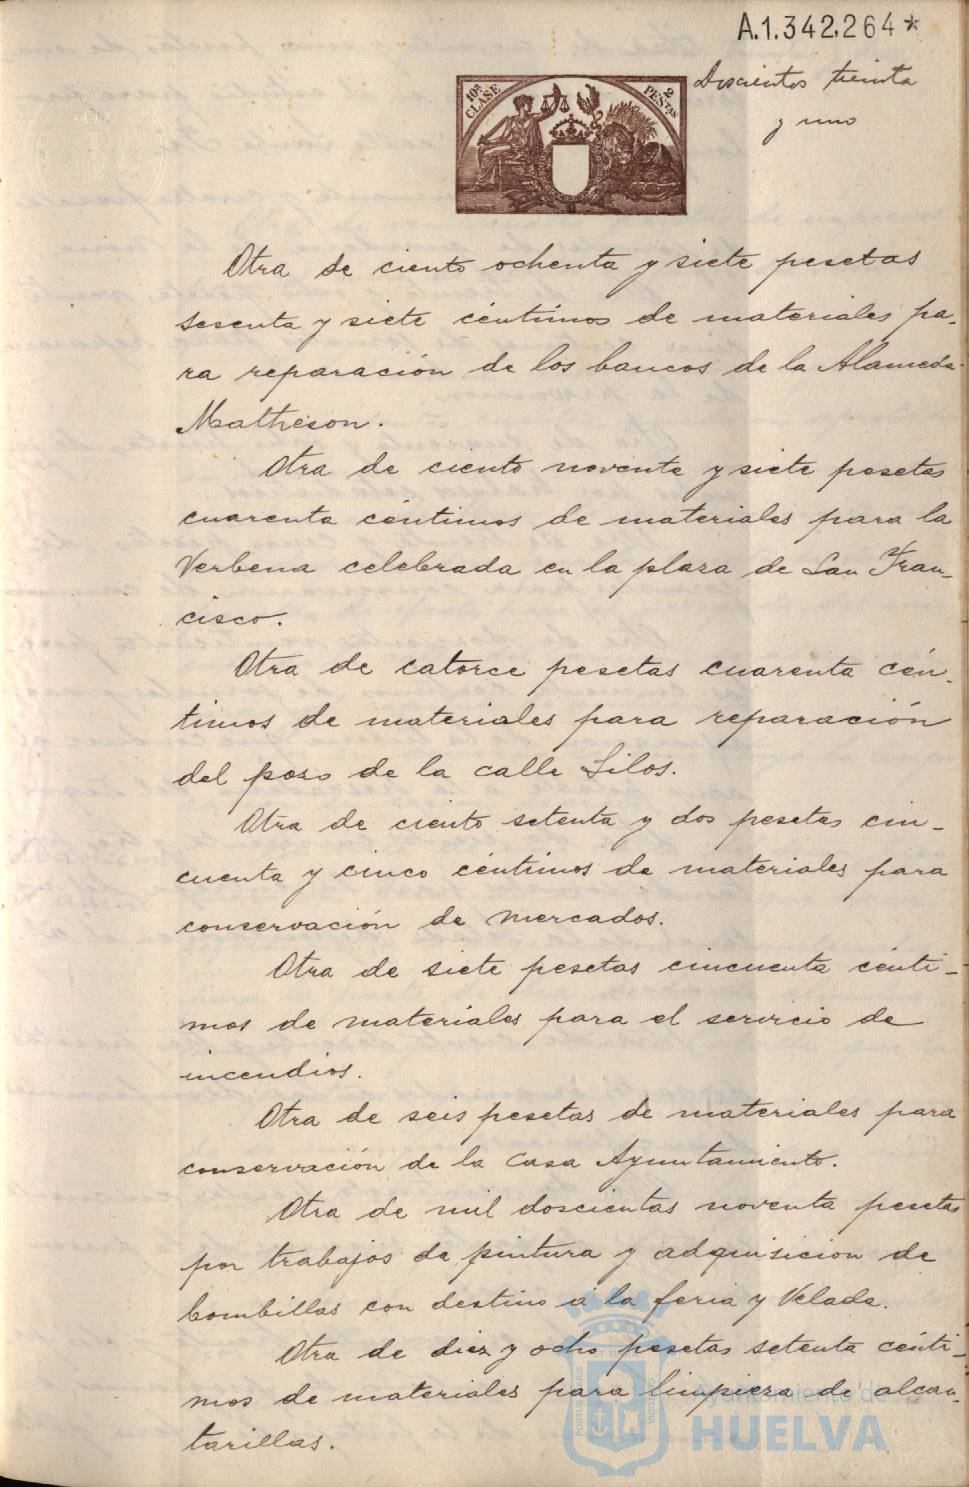 A.1.342.264*
10ª CLASE
2 PESTAS
Doscientos treinta
y uno
Otra de ciento ochenta y siete pesetas
sesenta y siete céntimos de materiales pa-
ra reparación de los bancos de la Alameda
Matheson.
Otra de ciento noventa y siete pesetas
cuarenta céntimos de materiales para la
Verbena celebrada en la plaza de San Fran-
cisco.
Otra de catorce pesetas cuarenta cén-
timos de materiales para reparación
del pozo de la calle Silos.
Otra de ciento setenta y dos pesetas cin-
cuenta y cinco céntimos de materiales para
conservación de mercados.
Otra de siete pesetas cincuenta cénti-
mos de materiales para el servicio de
incendios.
Otra de seis pesetas de materiales para
conservación de la Casa Ayuntamiento.
Otra de mil doscientas noventa pesetas
por trabajos de pintura y adquisicion de
bombillas con destino á la feria y Velada.
Otra de diez y ocho pesetas setenta cénti-
mos de materiales para limpieza de alcan-
tarillas.
Ayuntamiento de
HUELVA